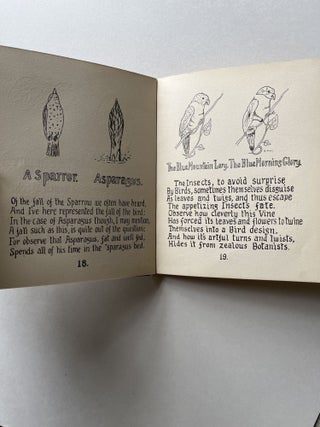 A Sparrer. Asparagus.
Of the fall of the Sparrow we often have heard,
And I've here represented the fall of the bird;
In the case of Asparagus though, I may mention,
A fall such as this, is quite out of the question:
For observe that Asparagus, fat and well fed,
Spends all of his time in the 'sparagus bed.
18.
The Blue Mountain Lory. The Blue Morning Glory.
The Insects, to avoid surprise
By Birds, sometimes themselves disguise
As leaves and twigs, and thus escape
The appetizing Insect's fate.
Observe how cleverly this Vine
Has forced its leaves and flowers to twine
Themselves into a Bird design.
And how it's artful turns and twists,
Hides it from zealous Botanists.
19.